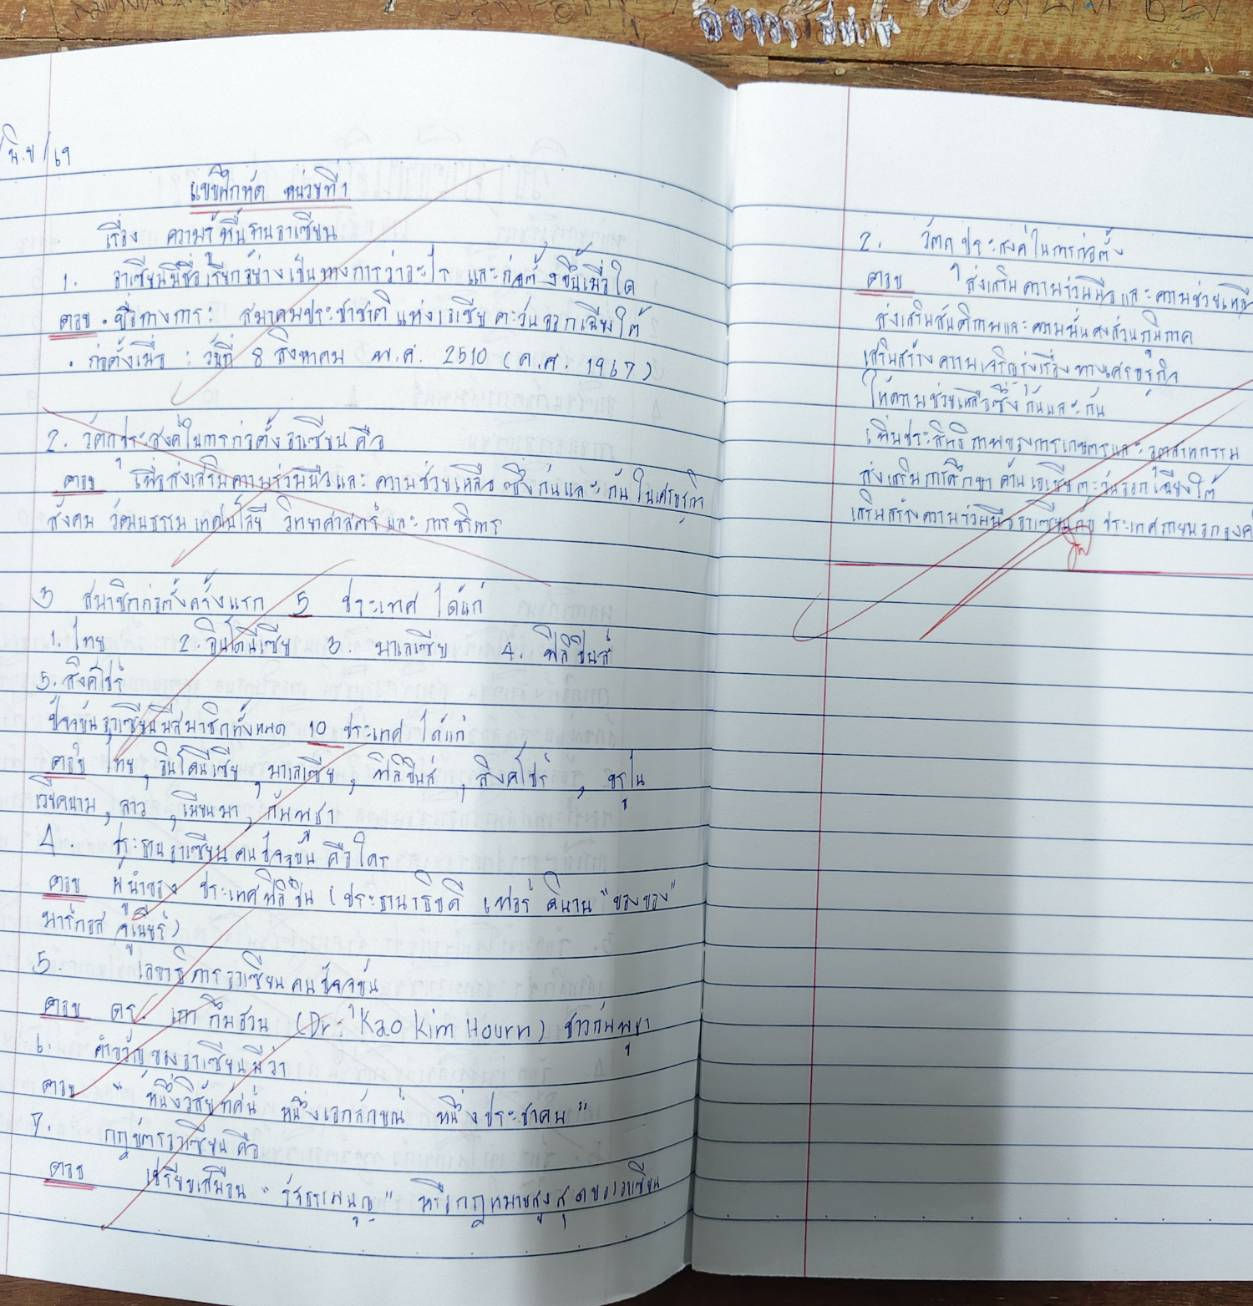 มิ.ย/69
แบบฝึกหัด หน่วยที่ 1
เรื่อง ความรู้พื้นฐานอาเซียน
1. อาเซียนมีชื่อเรียกอย่างเป็นทางการว่าอะไร และก่อตั้งขึ้นเมื่อใด
ตอบ • ชื่อทางการ: สมาคมประชาชาติแห่งเอเชียตะวันออกเฉียงใต้
• ก่อตั้งเมื่อ : วันที่ 8 สิงหาคม พ.ศ. 2510 (ค.ศ. 1967)
2. วัตถุประสงค์ในการก่อตั้งอาเซียนคือ
ตอบ เพื่อส่งเสริมความร่วมมือและความช่วยเหลือซึ่งกันและกันในเศรษฐกิจ
สังคม วัฒนธรรม เทคโนโลยี วิทยาศาสตร์และการบริหาร
3 สมาชิกก่อตั้งครั้งแรก 5 ประเทศ ได้แก่
1. ไทย 2. อินโดนีเซีย 3. มาเลเซีย 4. ฟิลิปปินส์
5. สิงคโปร์
ปัจจุบันอาเซียนมีสมาชิกทั้งหมด 10 ประเทศ ได้แก่
ตอบ ไทย, อินโดนีเซีย, มาเลเซีย, ฟิลิปปินส์, สิงคโปร์, บรูไน
เวียดนาม, ลาว, เมียนมา, กัมพูชา
4. ประธานอาเซียนคนปัจจุบันคือใคร
ตอบ ผู้นำของ ประเทศฟิลิปปิน (ประธานาธิบดี เฟอร์ดินาน "บองบอง"
มาร์กอส จูเนียร์)
5. เลขาธิการอาเซียนคนปัจจุบัน
ตอบ ดร. เกา กึมฮวน (Dr. Kao Kim Hourn) ชาวกัมพูชา
6. คำขวัญของอาเซียนมีว่า
ตอบ "หนึ่งวิสัยทัศน์ หนึ่งเอกลักษณ์ หนึ่งประชาคม"
7. กฎบัตรอาเซียนคือ
ตอบ เปรียบเสมือน "รัฐธรรมนูญ" หรือกฎหมายสูงสุดของอาเซียน
2. วัตถุประสงค์ในการก่อตั้ง
ตอบ ส่งเสริมความร่วมมือและความช่วยเหลือ
ส่งเสริมสันติภาพและความมั่นคงส่วนภูมิภาค
เสริมสร้างความเจริญรุ่งเรืองทางเศรษฐกิจ
ให้ความช่วยเหลือซึ่งกันและกัน
เพิ่มประสิทธิภาพของการเกษตรและอุตสาหกรรม
ส่งเสริมการศึกษาด้านเอเชียตะวันออกเฉียงใต้
เสริมสร้างความร่วมมืออาเซียนกับประเทศภายนอกองค์